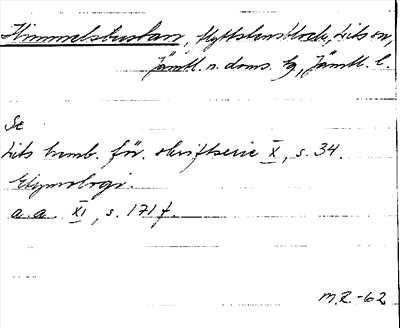 Himmelsbustan, flyttblock, Lits sn,
Jämtl. n. doms. tg, Jämtl. l.
Se
Lits hemb. för. skriftserie X, s. 34.
Etymologi.
a.a. XI, s. 171 f.
M.R.-62